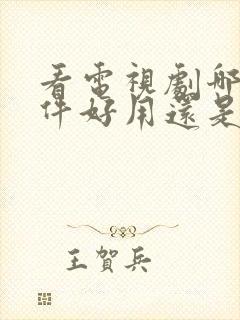 看電視劇哪
件好用還是
王賀兵